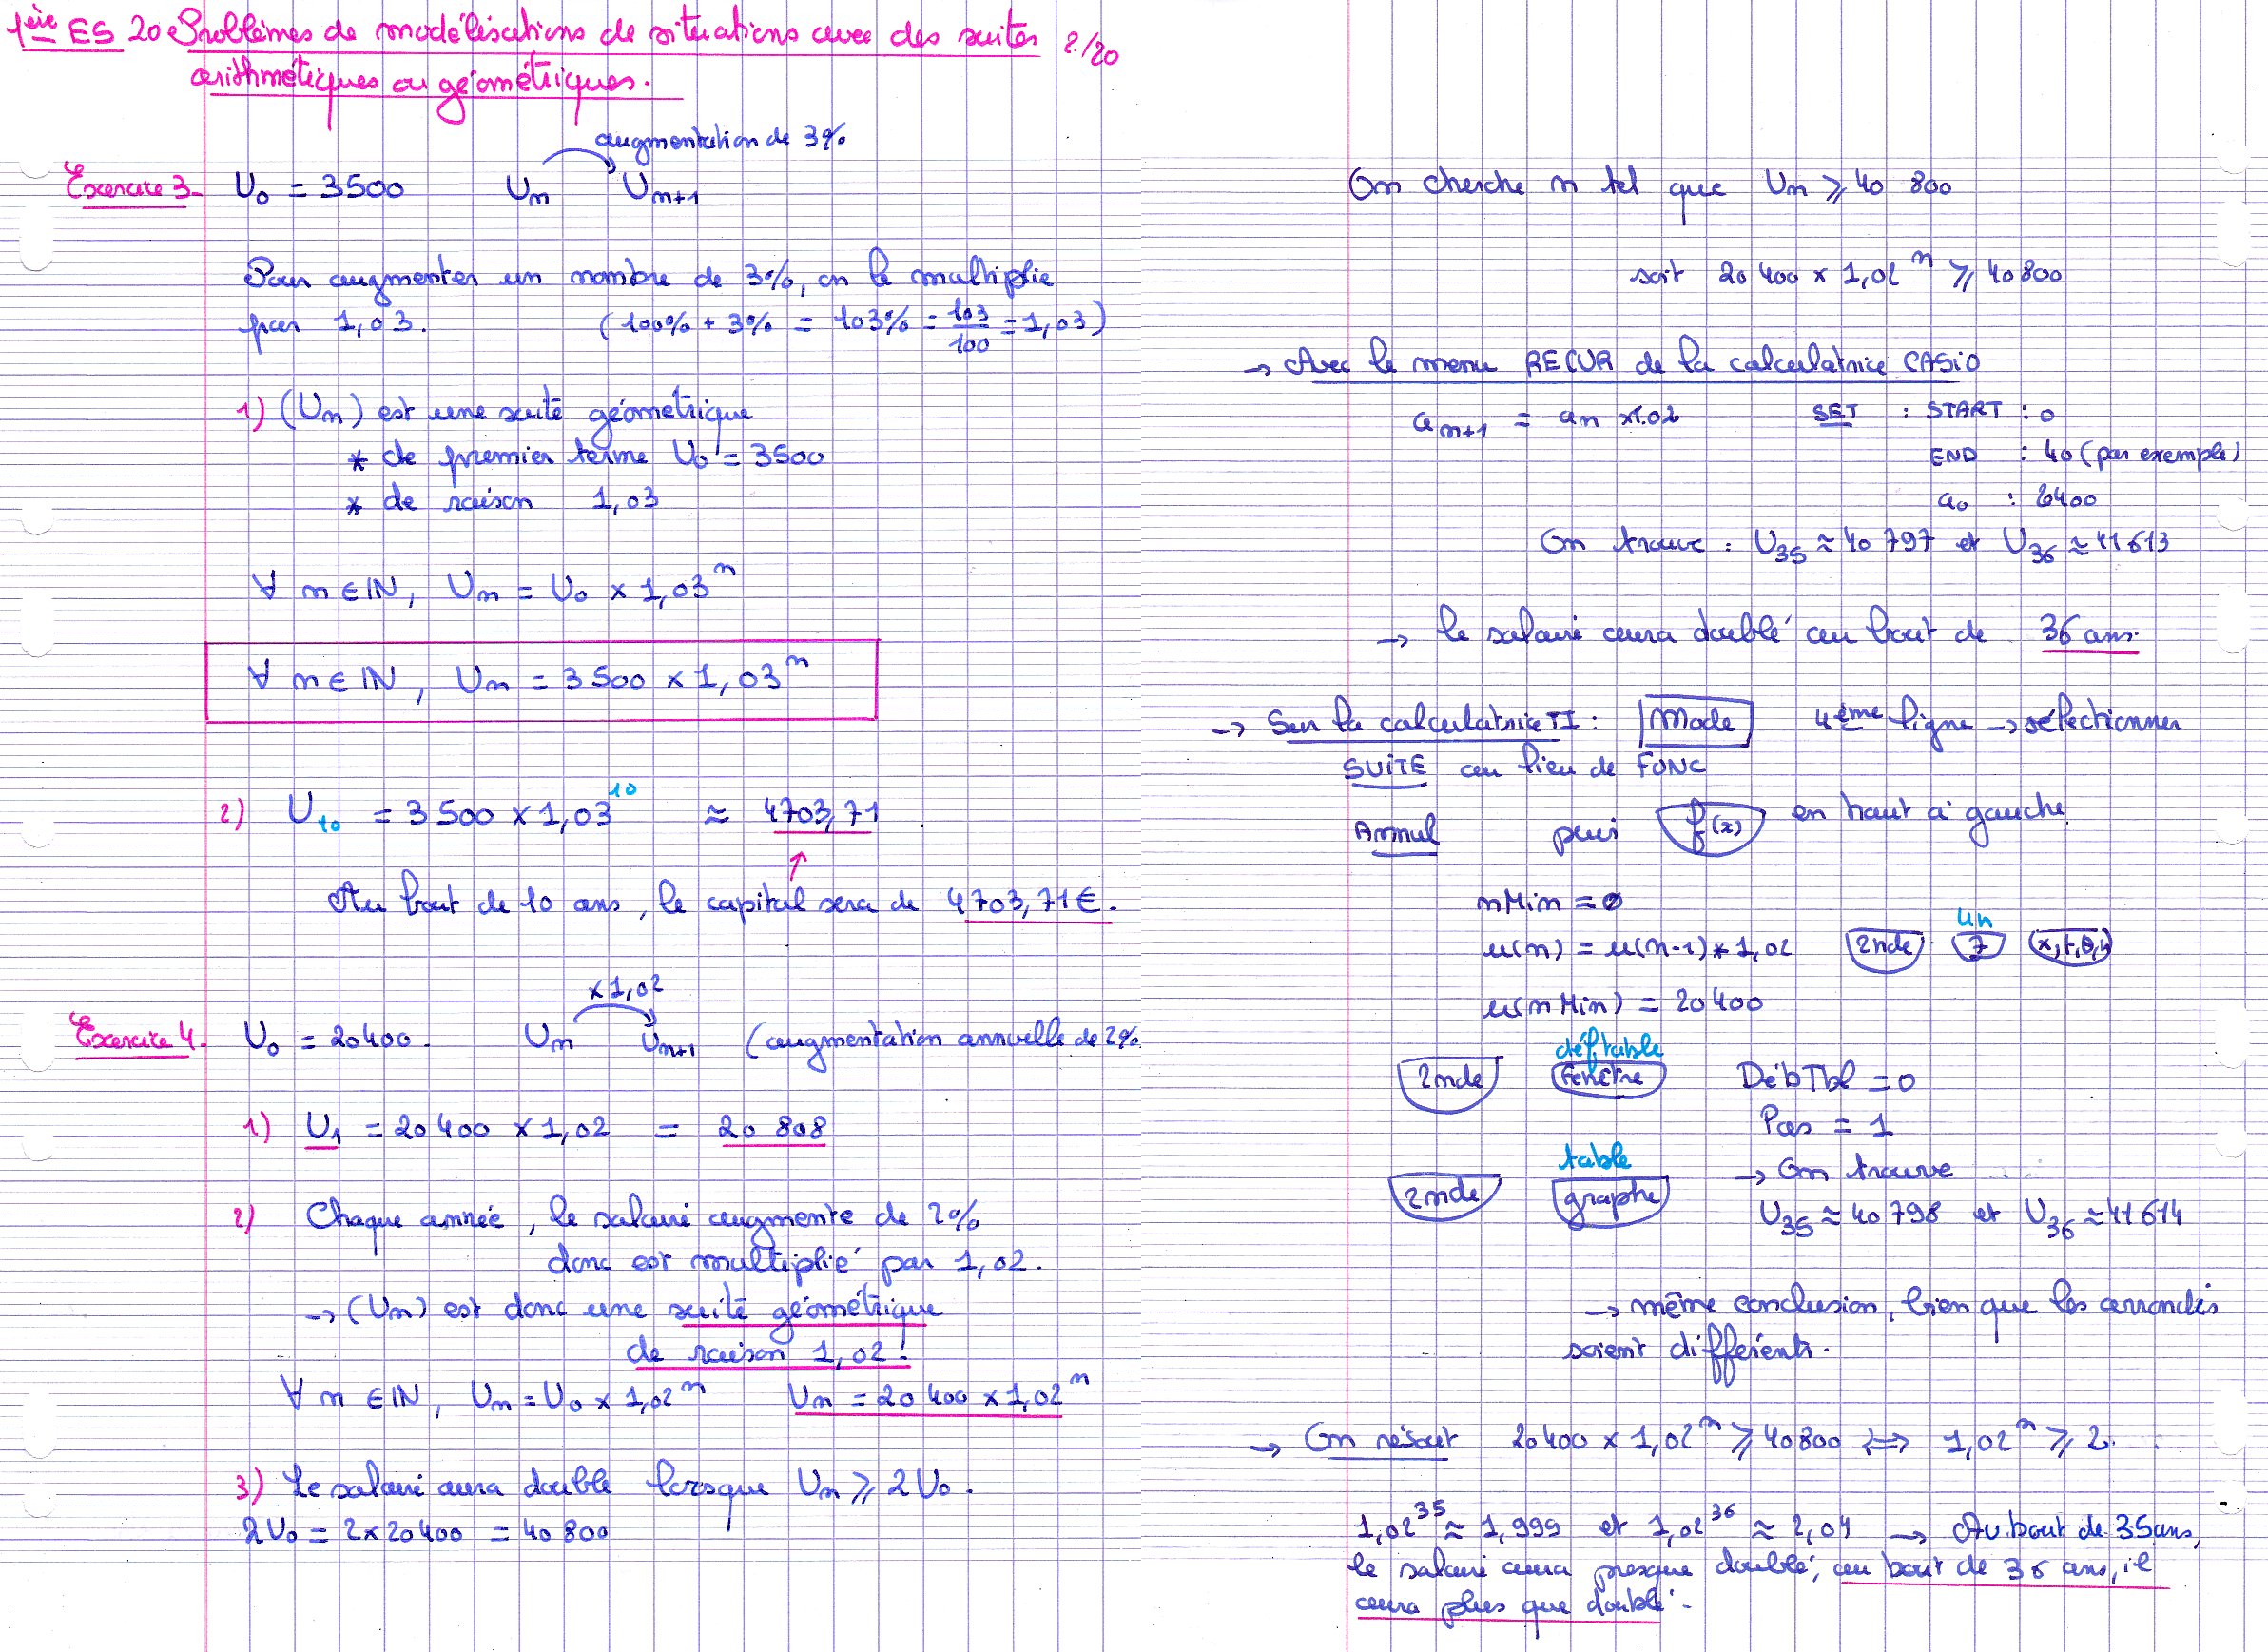 1ère ES 20 Problèmes de modélisations de situations avec des suites 2/20
arithmétiques ou géométriques.
augmentation de 3%
Exercice 3- U₀ = 3500 Uₙ Uₙ₊₁
Pour augmenter un nombre de 3%, on le multiplie
par 1,03. (100% + 3% = 103% = 103/100 = 1,03)
1) (Uₙ) est une suite géométrique
* de premier terme U₀ = 3500
* de raison 1,03
∀ n ∈ IN, Uₙ = U₀ × 1,03ⁿ
∀ n ∈ IN, Uₙ = 3500 × 1,03ⁿ
2) U₁₀ = 3500 × 1,03¹⁰ ≈ 4703,71
↑
Au bout de 10 ans, le capital sera de 4703,71€.
×1,02
Exercice 4. U₀ = 20400. Uₙ Uₙ₊₁ (augmentation annuelle de 2%
1) U₁ = 20400 × 1,02 = 20 808
2) Chaque année, le salaire augmente de 2%
donc est multiplié par 1,02.
→ (Uₙ) est donc une suite géométrique
de raison 1,02.
∀ n ∈ IN, Uₙ = U₀ × 1,02ⁿ Uₙ = 20 400 × 1,02ⁿ
3) Le salaire aura doublé lorsque Uₙ ⩾ 2U₀.
2U₀ = 2×20400 = 40 800
On cherche n tel que Uₙ ⩾ 40 800
soit 20 400 × 1,02ⁿ ⩾ 40800
→ Avec le menu RECUR de la calculatrice CASIO
aₙ₊₁ = an ×1.02 SET : START : 0
END : 40 (par exemple)
a₀ : 20400
On trouve : U₃₅ ≈ 40 797 et U₃₆ ≈ 41613
→ le salaire aura doublé au bout de 36 ans.
→ Sur la calculatrice TI : Mode 4ème ligne → sélectionner
SUITE au lieu de FONC
Annul puis f(x) en haut à gauche
nMin = 0
un
u(n) = u(n-1)*1,02 2nde 7 (x,t,θ,n)
u(nMin) = 20400
déf table
2nde fenêtre DébTbl = 0
Pas = 1
table
2nde graphe → On trouve
U₃₅ ≈ 40 798 et U₃₆ ≈ 41614
→ même conclusion, bien que les arrondis
soient différents.
→ On résout 20400 × 1,02ⁿ ⩾ 40800 ⟺ 1,02ⁿ ⩾ 2.
1,02³⁵ ≈ 1,999 et 1,02³⁶ ≈ 2,04 → Au bout de 35 ans,
le salaire aura presque doublé, au bout de 36 ans, il
aura plus que doublé.